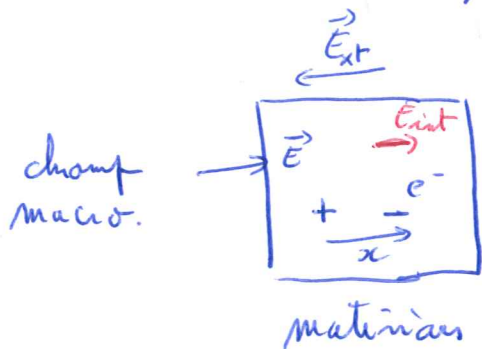 E⃗xt
champ
macro.
E⃗
Eint
+
−
e⁻
x
matériau